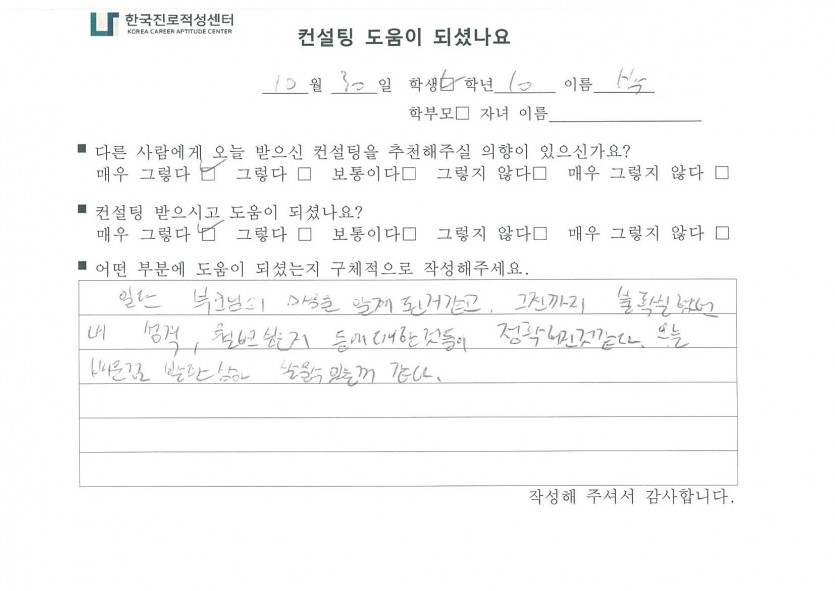 한국진로적성센터
KOREA CAREER APTITUDE CENTER
컨설팅 도움이 되셨나요
10 월 30 일 학생☑ 학년 10 이름
학부모□ 자녀 이름
■ 다른 사람에게 오늘 받으신 컨설팅을 추천해주실 의향이 있으신가요?
매우 그렇다 ☑ 그렇다 □ 보통이다□ 그렇지 않다□ 매우 그렇지 않다 □
■ 컨설팅 받으시고 도움이 되셨나요?
매우 그렇다 ☑ 그렇다 □ 보통이다□ 그렇지 않다□ 매우 그렇지 않다 □
■ 어떤 부분에 도움이 되셨는지 구체적으로 작성해주세요.
일단 부모님의 마음을 알게 된거같고, 그전까지 불확실했던
내 성격, 등에 대한것들이 정확해진것같다. 오늘
배운걸 발판삼아 같다.
작성해 주셔서 감사합니다.